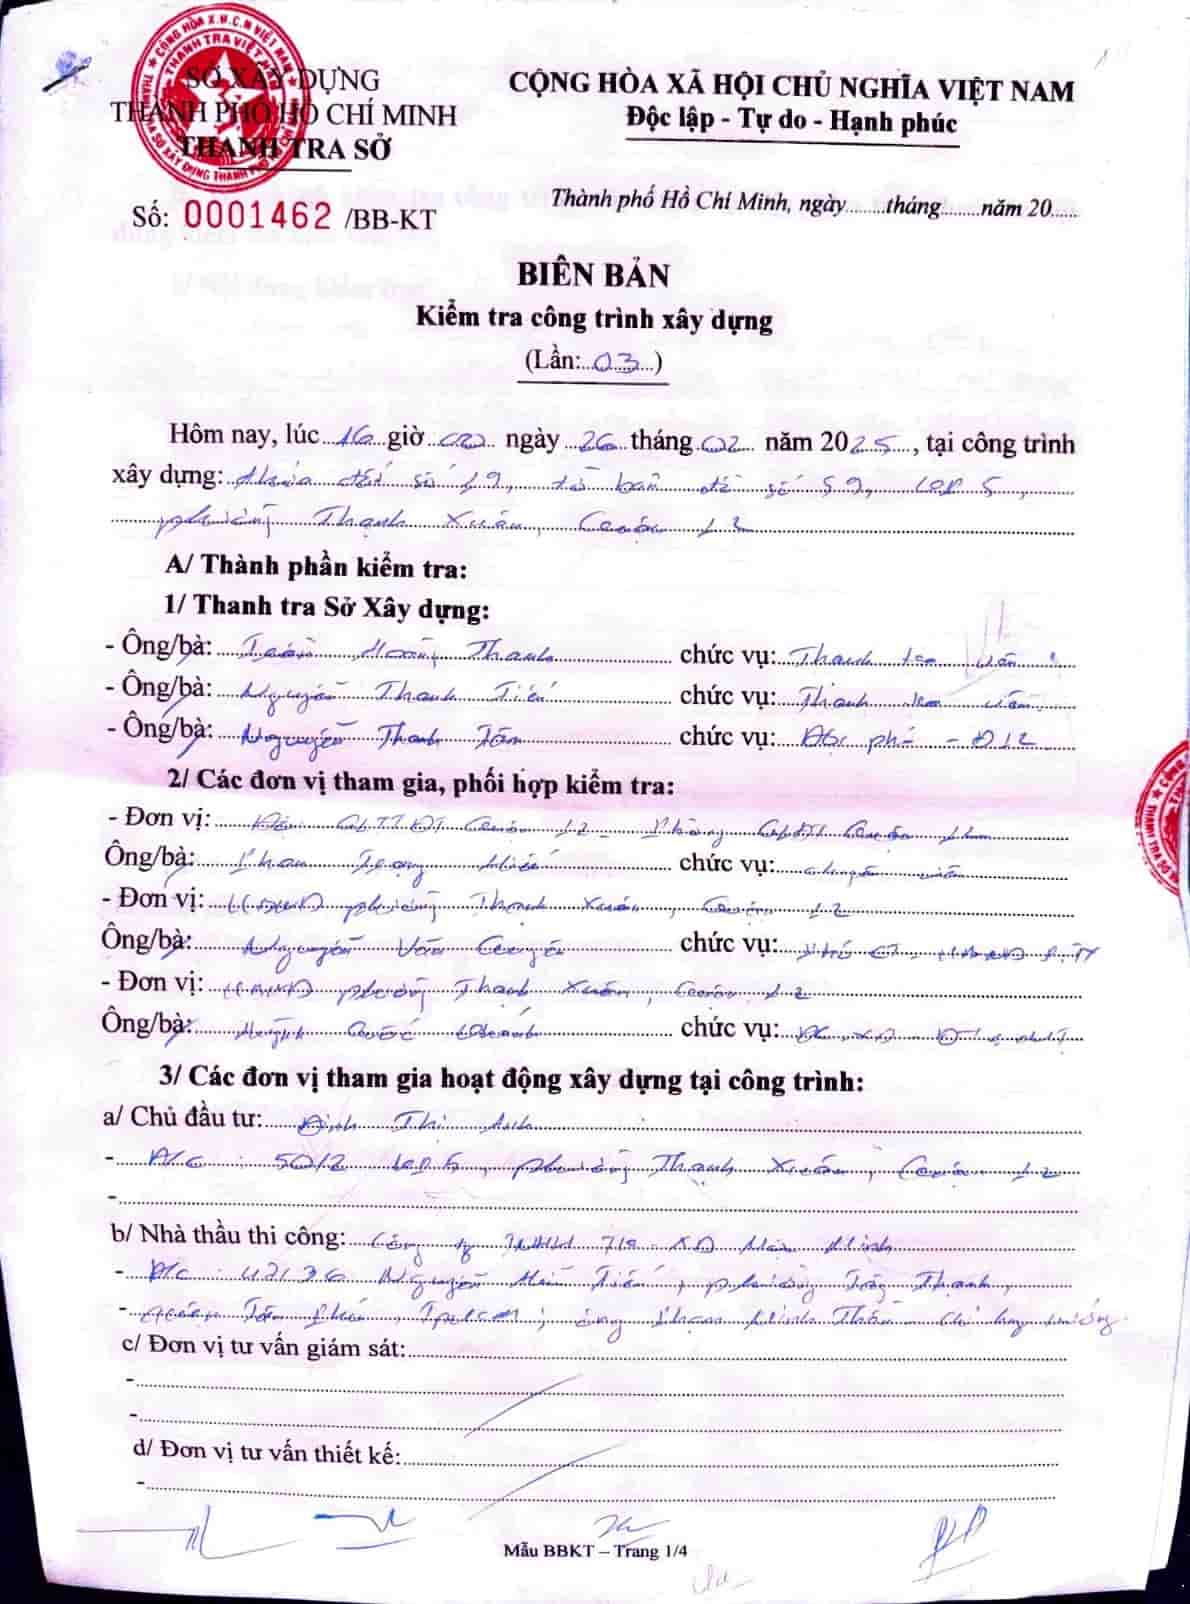 SỞ XÂY DỰNG
THÀNH PHỐ HỒ CHÍ MINH
THANH TRA SỞ
Số: 0001462 /BB-KT
CỘNG HÒA XÃ HỘI CHỦ NGHĨA VIỆT NAM
Độc lập - Tự do - Hạnh phúc
Thành phố Hồ Chí Minh, ngày........tháng........năm 20......
BIÊN BẢN
Kiểm tra công trình xây dựng
(Lần: 03)
Hôm nay, lúc 16 giờ 00 ngày 26 tháng 02 năm 2025, tại công trình
xây dựng: thửa đất số 19, tờ bản đồ số 59, KP 5,
phường Thạnh Xuân, Quận 12
A/ Thành phần kiểm tra:
1/ Thanh tra Sở Xây dựng:
- Ông/bà: Trần Hoàng Thanh chức vụ: Thanh tra viên
- Ông/bà: Nguyễn Thanh Tiến chức vụ: Thanh tra viên
- Ông/bà: Nguyễn Thanh Tâm chức vụ: Đội phó - Đ12
2/ Các đơn vị tham gia, phối hợp kiểm tra:
- Đơn vị: Quận 12 - Phòng Quận 12
Ông/bà: Phan Trọng chức vụ: chuyên viên
- Đơn vị: UBND phường Thạnh Xuân, Quận 12
Ông/bà: Nguyễn Văn chức vụ: Phó CT. UBND
- Đơn vị: UBND phường Thạnh Xuân, Quận 12
Ông/bà: Huỳnh Quốc chức vụ:
3/ Các đơn vị tham gia hoạt động xây dựng tại công trình:
a/ Chủ đầu tư: Đinh Thị Anh
- Đ/c: 50/2 KP 5, phường Thạnh Xuân, Quận 12
-
b/ Nhà thầu thi công: Công ty TNHH XD Minh
- Đ/c: Nguyễn , phường Thạnh,
- quận Tân Phú, Tp.HCM; ông Phạm Minh Chỉ huy trưởng
c/ Đơn vị tư vấn giám sát:
-
-
d/ Đơn vị tư vấn thiết kế:
-
Mẫu BBKT – Trang 1/4